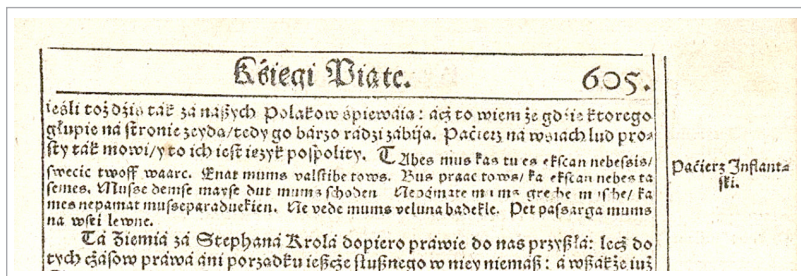 Kśięgi Piąte. 605.
ieśli toż dziś ták zá nászych Polakow śpiewáia: ácż to wiem że gdzie ktorego
głupie ná stronie zeydą/ tedy go bárzo rádzi zábiją. Paćierz ná wśiách lud pro-
sty ták mowi/ y to ich iest ięzyk pospolity. TAbes mus kas tu es ekscan nebesśis/
swecic twoff waarc. Enat mums valstibe tows. Bus praac tows/ ka ekscan nebes ta
semes. Musse demse mayse dut mums schoden Nepámate mums greche musche/ ka
mes nepamat musseparaduekien. Ne vede mums veluna badekle. Pet passarga mums
na wsei lewne.
Paćierz Inflant-
ski.
Tá Ziemiá zá Stepháná Krolá dopiero práwie do nas przyszłá: lecż do
tych cżásow práwá áni porządku ieszcże słusznego w niey niemász: á wszákże iuż